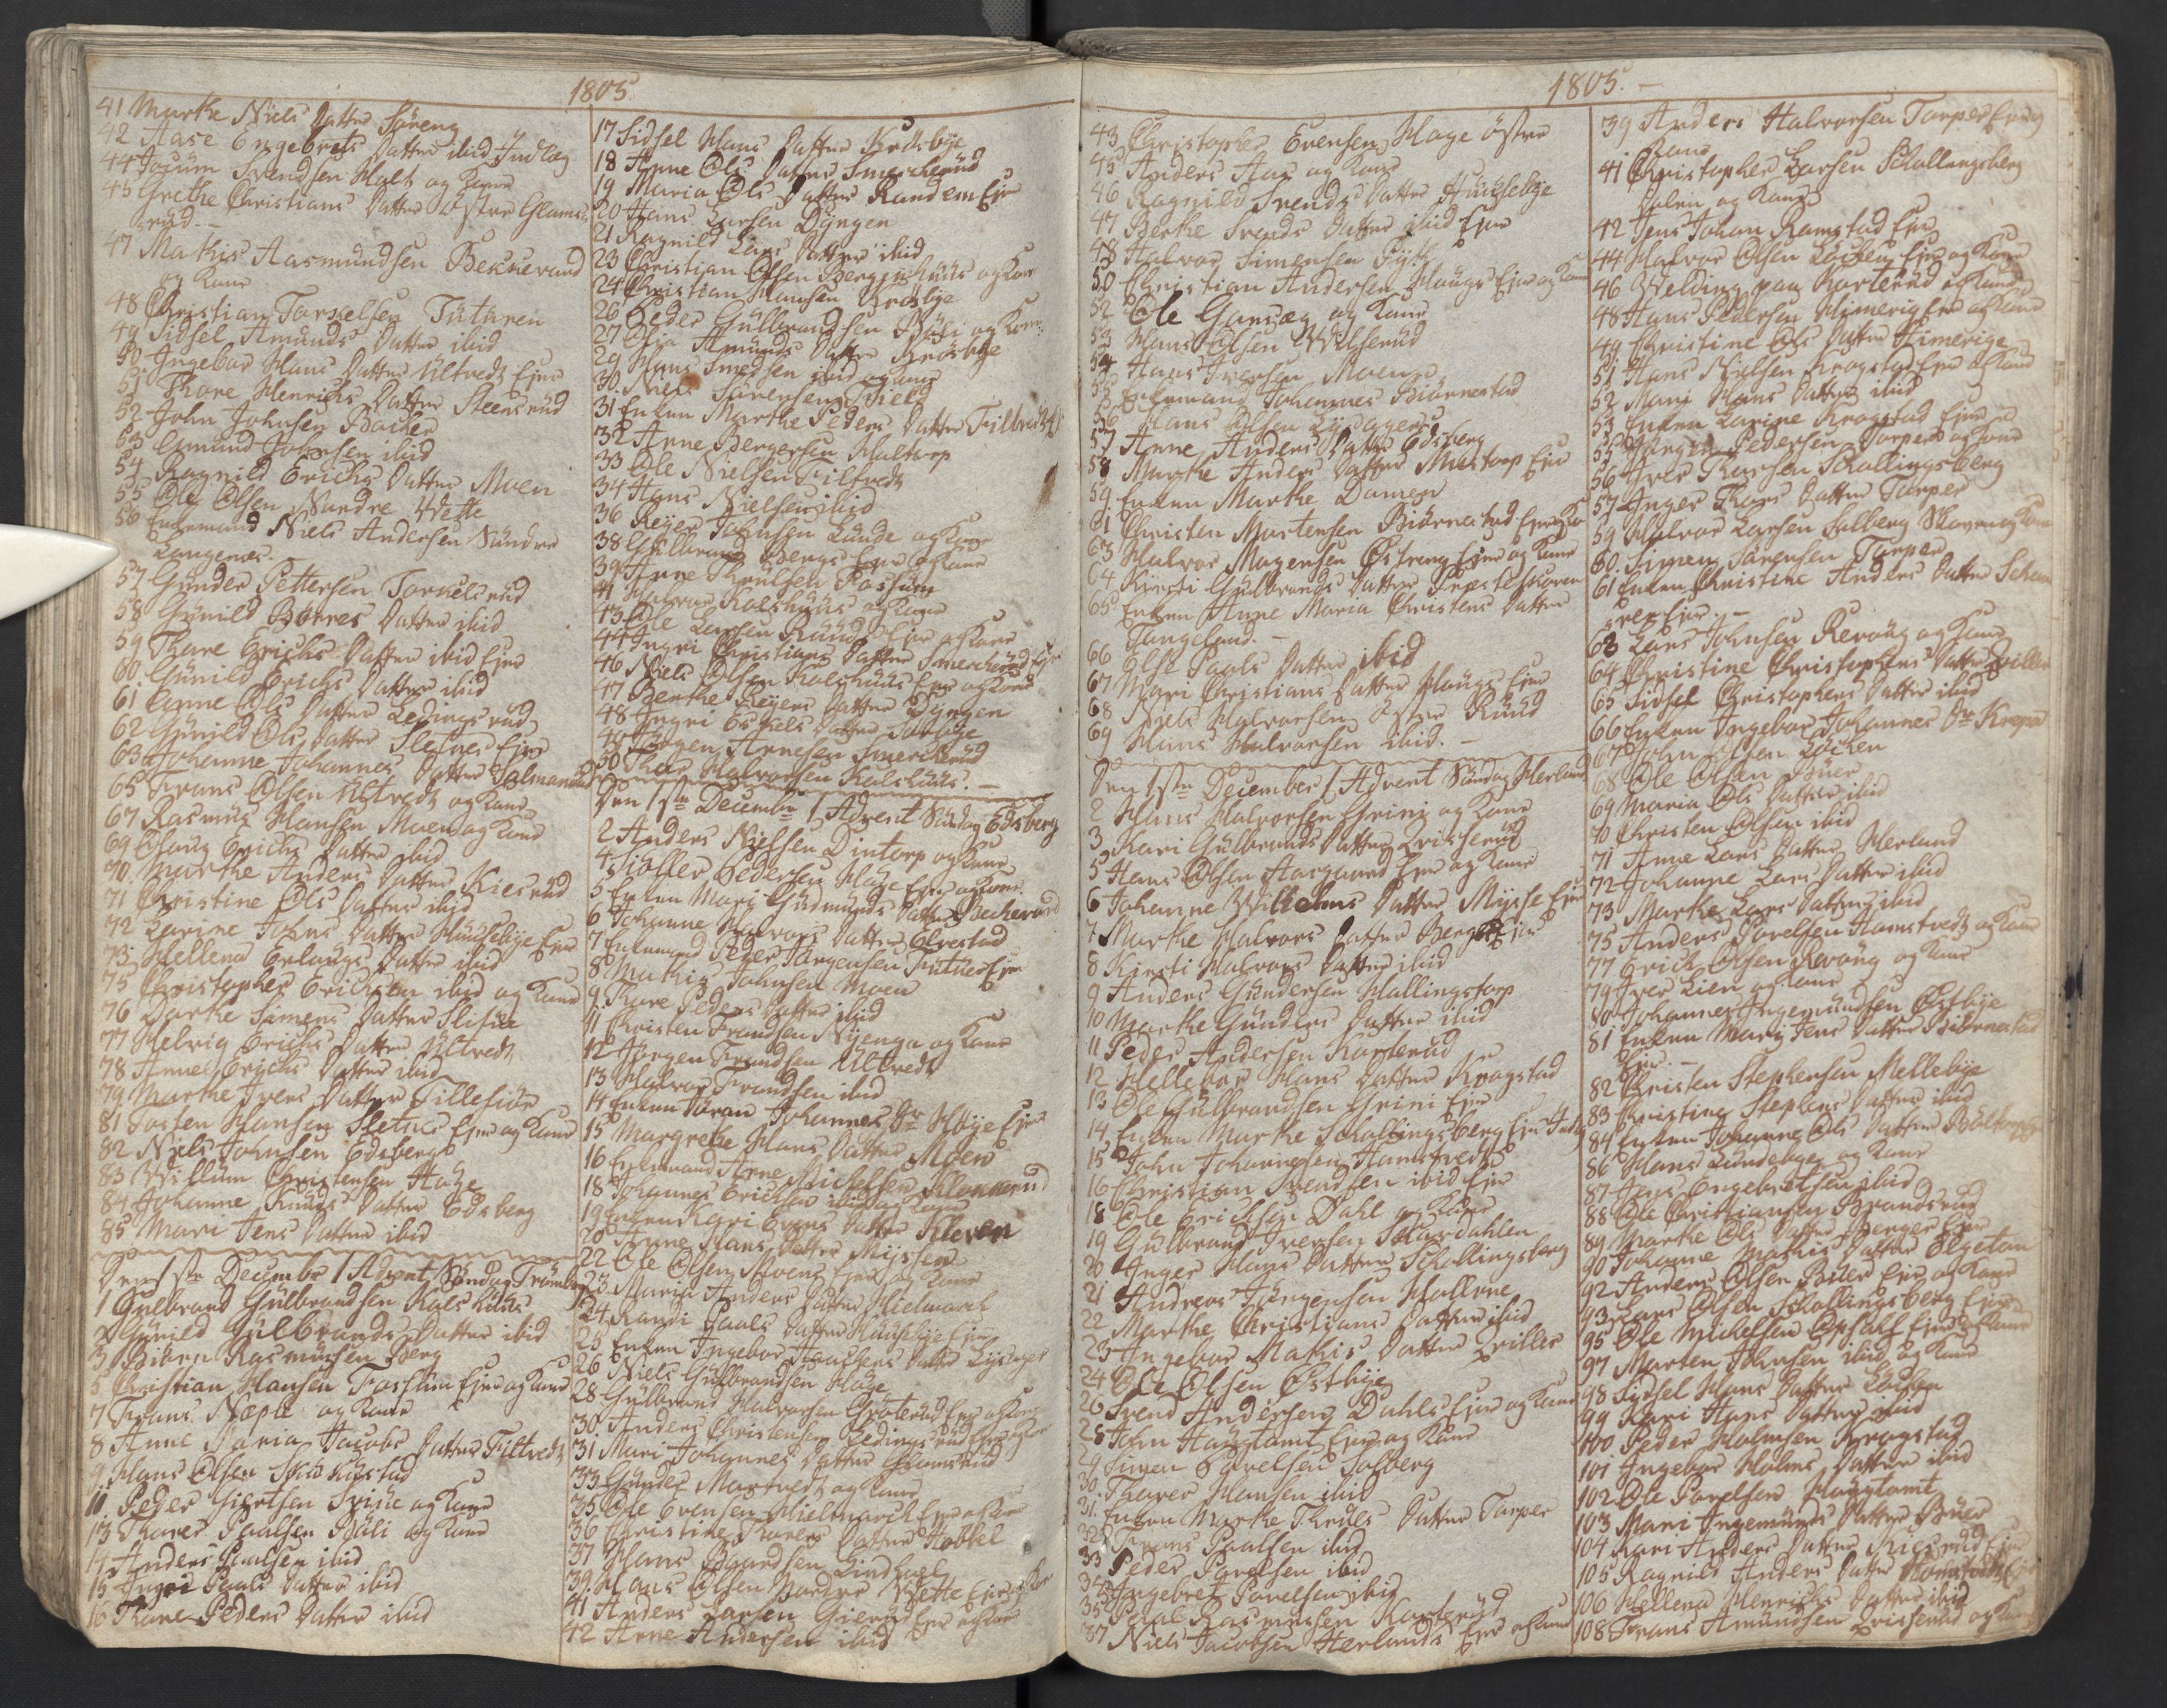 1805
41 Marthe Niels Datter Süreng
42 Aase Engebrets Datter ibid Indlæg
44 Jocüm Svendsen Holt og Kone
45 Grethe Christians Datter østre Glams
rüd.
47 Mathis Aasmundsen Beckevand
og Kone
48 Christian Tarielsen Tüthren
49 Sidsel Amünds Datter ibid
50 Ingebor Hans Datter Ültvedt Ejer
51 Thore Henrichs Datter Steensrüd
52 John Johnsen Backer
53 Amünd Johnsen ibid
54 Ragnild Erichs Datter Moen
55 Ole Olsen Nundre Wette
56 Enkemand Niels Andersen Sündre
Langenæs.
57 Günder Pettersen Tornelsrüd
58 Günild Borres Datter ibid
59 Thore Erichs Datter ibid Ejer
60 Günild Erichs Datter ibid
61 Anne Ols Datter Ledingsrüd
62 Günild Ols Datter Sletnes Ejer
63 Johanne Johannes Datter Salmonrüd
65 Frans Olsen Ültvedt og Kone
67 Rasmus Hansen Moen og Kone
69 Olaug Erichs Datter ibid
70 Marthe Anders Datter Kiesrüd
71 Christine Ols Datter ibid
72 Karine Johns Datter Huusebye Ejer
73 Hellena Erlaugs Datter ibid
75 Christopher Erichsen ibid og Kone
76 Dorthe Simens Datter Slisüe
77 Helvig Erichs Datter Ültvedt
78 Anne Erichs Datter ibid
79 Marthe Ivers Datter Tillesiør
81 Torsten Hansen Sletnes Ejer og Kone
82 Niels Johnsen Edsberg
83 Willum Christensen Hage
84 Johanne Knuds Datter Edsberg
85 Mari Jens Datter ibid
Den 1ste Decembr 1 Advent Søndag Trømborg
1 Gulbrand Gulbrandsen Kals Huus
2 Günild Gulbrands Datter ibid
3 Biørn Rasmusen Berg
5 Christian Hansen Fossum Ejer og Kone
7 Frans Næple og Kone
8 Anne Maria Jacobs Datter Filtvedt
9 Hans Olsen
11 Peder Giertsen Sviüe og Kone
13 Thorer Paalsen Büli og Kone
14 Anders Paalsen ibid
15 Ingri Paals Datter ibid
16 Thore Peders Datter ibid
17 Sidsel Hans Datter Krosbye
18 Anne Ols Datter Smercherüd
19 Maria Ols Datter Randem Ejer
20 Hans Larsen Dyngen
21 Ragnild Lars Datter ibid
23 Christian Olsen Bergershuus og Kone
24 Christian Hansen Krosbye
26 Peder Gulbrandsen Büli og Kone
27 Amunds Datter Krosbye
29 Hans Smedsen ibid og
30 Niels Sürensen Field
31 Enken Marthe Peders Datter Filtvedt
32 Anne Bergersen Haltorp
33 Ole Nielsen Filtvedt
34 Hans Nielsen ibid
36 Reyer Johnsen Lunde og Kone
38 Gulbrand Bergs Ejer og Kone
39 Arne Trulsen Fossum
41 Halvor Kolshuus og Kone
43 Ole Larsen Ruud Ejer og Kone
44 Ingri Christians Datter Smercherüd Ejer
46 Niels Olsen Kolshuus Ejer og Kone
47 Berthe Reyers Datter Dyngen
48 Ingri Eskels Datter Sarbye
49 Jørgen Arnesen Smercherüd
50 Thor Halvorsen Kalshuus.
Den 1ste Decembr 1 Advent Søndag Edsberg
2 Anders Nielsen Dintorp og Kone
4 Stoffer Pedersen Hage Ejer og Kone
5 Enken Mari Gudmunds Datter Beckevand
6 Johanne Halvors Datter Elvestad
7 Enkemand Peder Jørgensen Tütner Ejer
8 Mathis Johnsen Moen
9 Thore Peders Datter ibid
11 Christen Frandsen Nyenga og Kone
12 Jørgen Frandsen Ültvedt
13 Halvor Frandsen ibid
14 Enken Jøran Johannes Dr Høye Ejer
15 Margrethe Hans Datter Moen
16 Enkemand Arne Michelsen Klonnerud
18 Johannes Erichsen ibid og Kone
19 Enken Kari Evens Datter Kleven
20 Anne Hans Datter Myssen
22 Ole Olsen Moens Ejer og Kone
23 Maria Anders Datter Hielmarch
24 Randi Paals Datter Huusebye Ejer
25 Enken Ingebor Haachens Datter Lysager
26 Niels Gulbrandsen Hage
28 Gulbrand Halvorsen Grøterüd Ejer og Kone
30 Anders Christensen Ledingsrüd Ejer og Kone
31 Mari Johannes Datter Glamsrüd
33 Gunder Mostvedt og Kone
35 Ole Evensen Hielmarch Ejer og Kone
36 Christine Thorers Datter Hobbel
37 Hans Baardsen Lindhoel
39 Hans Olsen Nordre Wette Ejer og Kone
41 Anders Larsen Gierüd Ejer og Kone
42 Arne Andersen ibid
1805.
43 Christopher Evensen Hage østre
45 Anders Aas og Kone
46 Ragnild Svends Datter Huusebye
47 Berthe Svends Datter ibid Ejer
48 Halvor Simensen Pytt
50 Christian Andersen Haugs Ejer og Kone
52 Ole Garsæg og Kone
53 Hans Olsen Wilserüd
54 Hans Iversen Moen
55 Enkemand Johannes Biørnestad
56 Hans Olsen Lysager
57 Anne Anders Datter Edsberg
58 Marthe Anders Datter Mustorp Ejer
59 Enken Marthe Damen
61 Christen Mortensen Biørnestad Ejer og Ko
63 Halvor Mogensen Østreng Ejer og Kone
64 Kirsti Gulbrands Datter Prestesckoven
65 Enken Anne Maria Christens Datter
Tangeland.
66 Else Paals Datter ibid
67 Mari Christians Datter Haugs Ejer
68 Niels Halvorsen østre Ruud
69 Hans Halvorsen ibid.
Den 1ste December 1 Advent Søndag Herland
2 Hans Halvorsen Grini og Kone
3 Kari Gulbrands Datter Qvisserüd
5 Hans Olsen Aasgaard Ejer og Kone
6 Johanne Willelms Datter Mysse Ejer
7 Marthe Halvors Datter Berger Ejer
8 Kirsti Halvors Datter ibid
9 Anders Gundersen Hallingstorp
10 Marthe Günders Datter ibid
11 Peder Andersen Karterüd
12 Hellebor Hans Datter Kragstad
13 Ole Gulbrandsen Grini Ejer
14 Enken Marthe Schallingsberg Ejer Indlæg
15 John Johannesen Hamstvedt
16 Christian Svendsen ibid Ejer
18 Ole Erichsen Dahl og Kone
19 Gulbrand Iversen Skardahlen
20 Inger Hans Datter Schallingsberg
21 Andreas Jørgensen Hallerne
22 Marthe Christians Datter ibid
23 Ingebor Mathis Datter Qviller
24 Ole Olsen Østbye
26 Svend Andersen Dahls Ejer og Kone
28 John Haugtomt Ejer og Kone
29 Simen Povelsen Solberg
30 Thorer Hansen ibid
31 Enken Marthe Thrules Datter Tarper
32 Frans Paalsen ibid
33 Peder Povelsen ibid
34 Ingebret Povelsen ibid
35 Poval Rasmusen Karterüd
37 Niels Jacobsen Herlands Ejer og Kone
39 Anders Halvorsen Tarper Ejer og
Kone
41 Christopher Larsen Schallingsberg
Dalen og Kone
42 Jens Johan Ramstad Ejer
44 Halvor Olsen Løcken Ejer og Kone
46 Welding paa Karterüd og Kone
48 Hans Pedersen Himerig Ejer og Kone
49 Christine Ols Datter Himerige
51 Hans Nielsen Kragstad Ejer og Kone
52 Mari Hans Datter ibid
53 Enken Karine Kragstad Ejer
55 Jørgen Pedersen Tarper og Kone
56 Iver Thorsen Schallingsberg
57 Inger Thors Datter Tarper
59 Halvor Larsen Solberg Skoven og Kone
60 Simen Sørensen Tarper
61 Enken Christine Anders Datter
Ejer.
63 Lars Johnsen Revoug og Kone
64 Christine Christophers Datter Qviller
65 Sidsel Christophers Datter ibid
66 Enken Ingebor Johannes Dr Krogs
67 John Olsen Løcken
68 Ole Olsen Buer
69 Maria Ols Datter ibid
70 Christen Olsen ibid
71 Anne Lars Datter Herland
72 Johanne Lars Datter ibid
73 Marthe Lars Datter ibid
75 Anders Povelsen Hamstvedt og Kone
77 Erich Olsen Revoug og Kone
79 Iver Lien og Kone
80 Johannes Ingemundsen Østbye
81 Enken Mari Jens Datter Biørnestad
Ejer.
82 Christen Stephensen Mellebye
83 Christine Stephens Datter ibid
84 Enken Johanne Ols Datter
86 Hans Lundebye og Kone
87 Jens Engebretsen ibid
88 Ole Christiansen Brandsrud
89 Marthe Ols Datter Berger Ejer
90 Johanne Mathis Datter Elgetun
92 Anders Olsen Buer Ejer og Kone
93 Lars Olsen Schallingsberg Ejer
95 Ole Michelsen Opsahl Ejer og Kone
97 Marten Johnsen ibid og Kone
98 Sydsel Hans Datter Løcken
99 Kari Hans Datter ibid
100 Peder Holmsen Kragstad
101 Ingebor Holms Datter ibid
102 Ole Povelsen Haugtomt
103 Mari Ingemunds Datter Buer
104 Kari Anders Datter Kiesrüd Ejer
105 Ragnild Anders Datter
106 Hellena Henrichs Datter ibid
108 Frans Amundsen Qvisserud og Kone